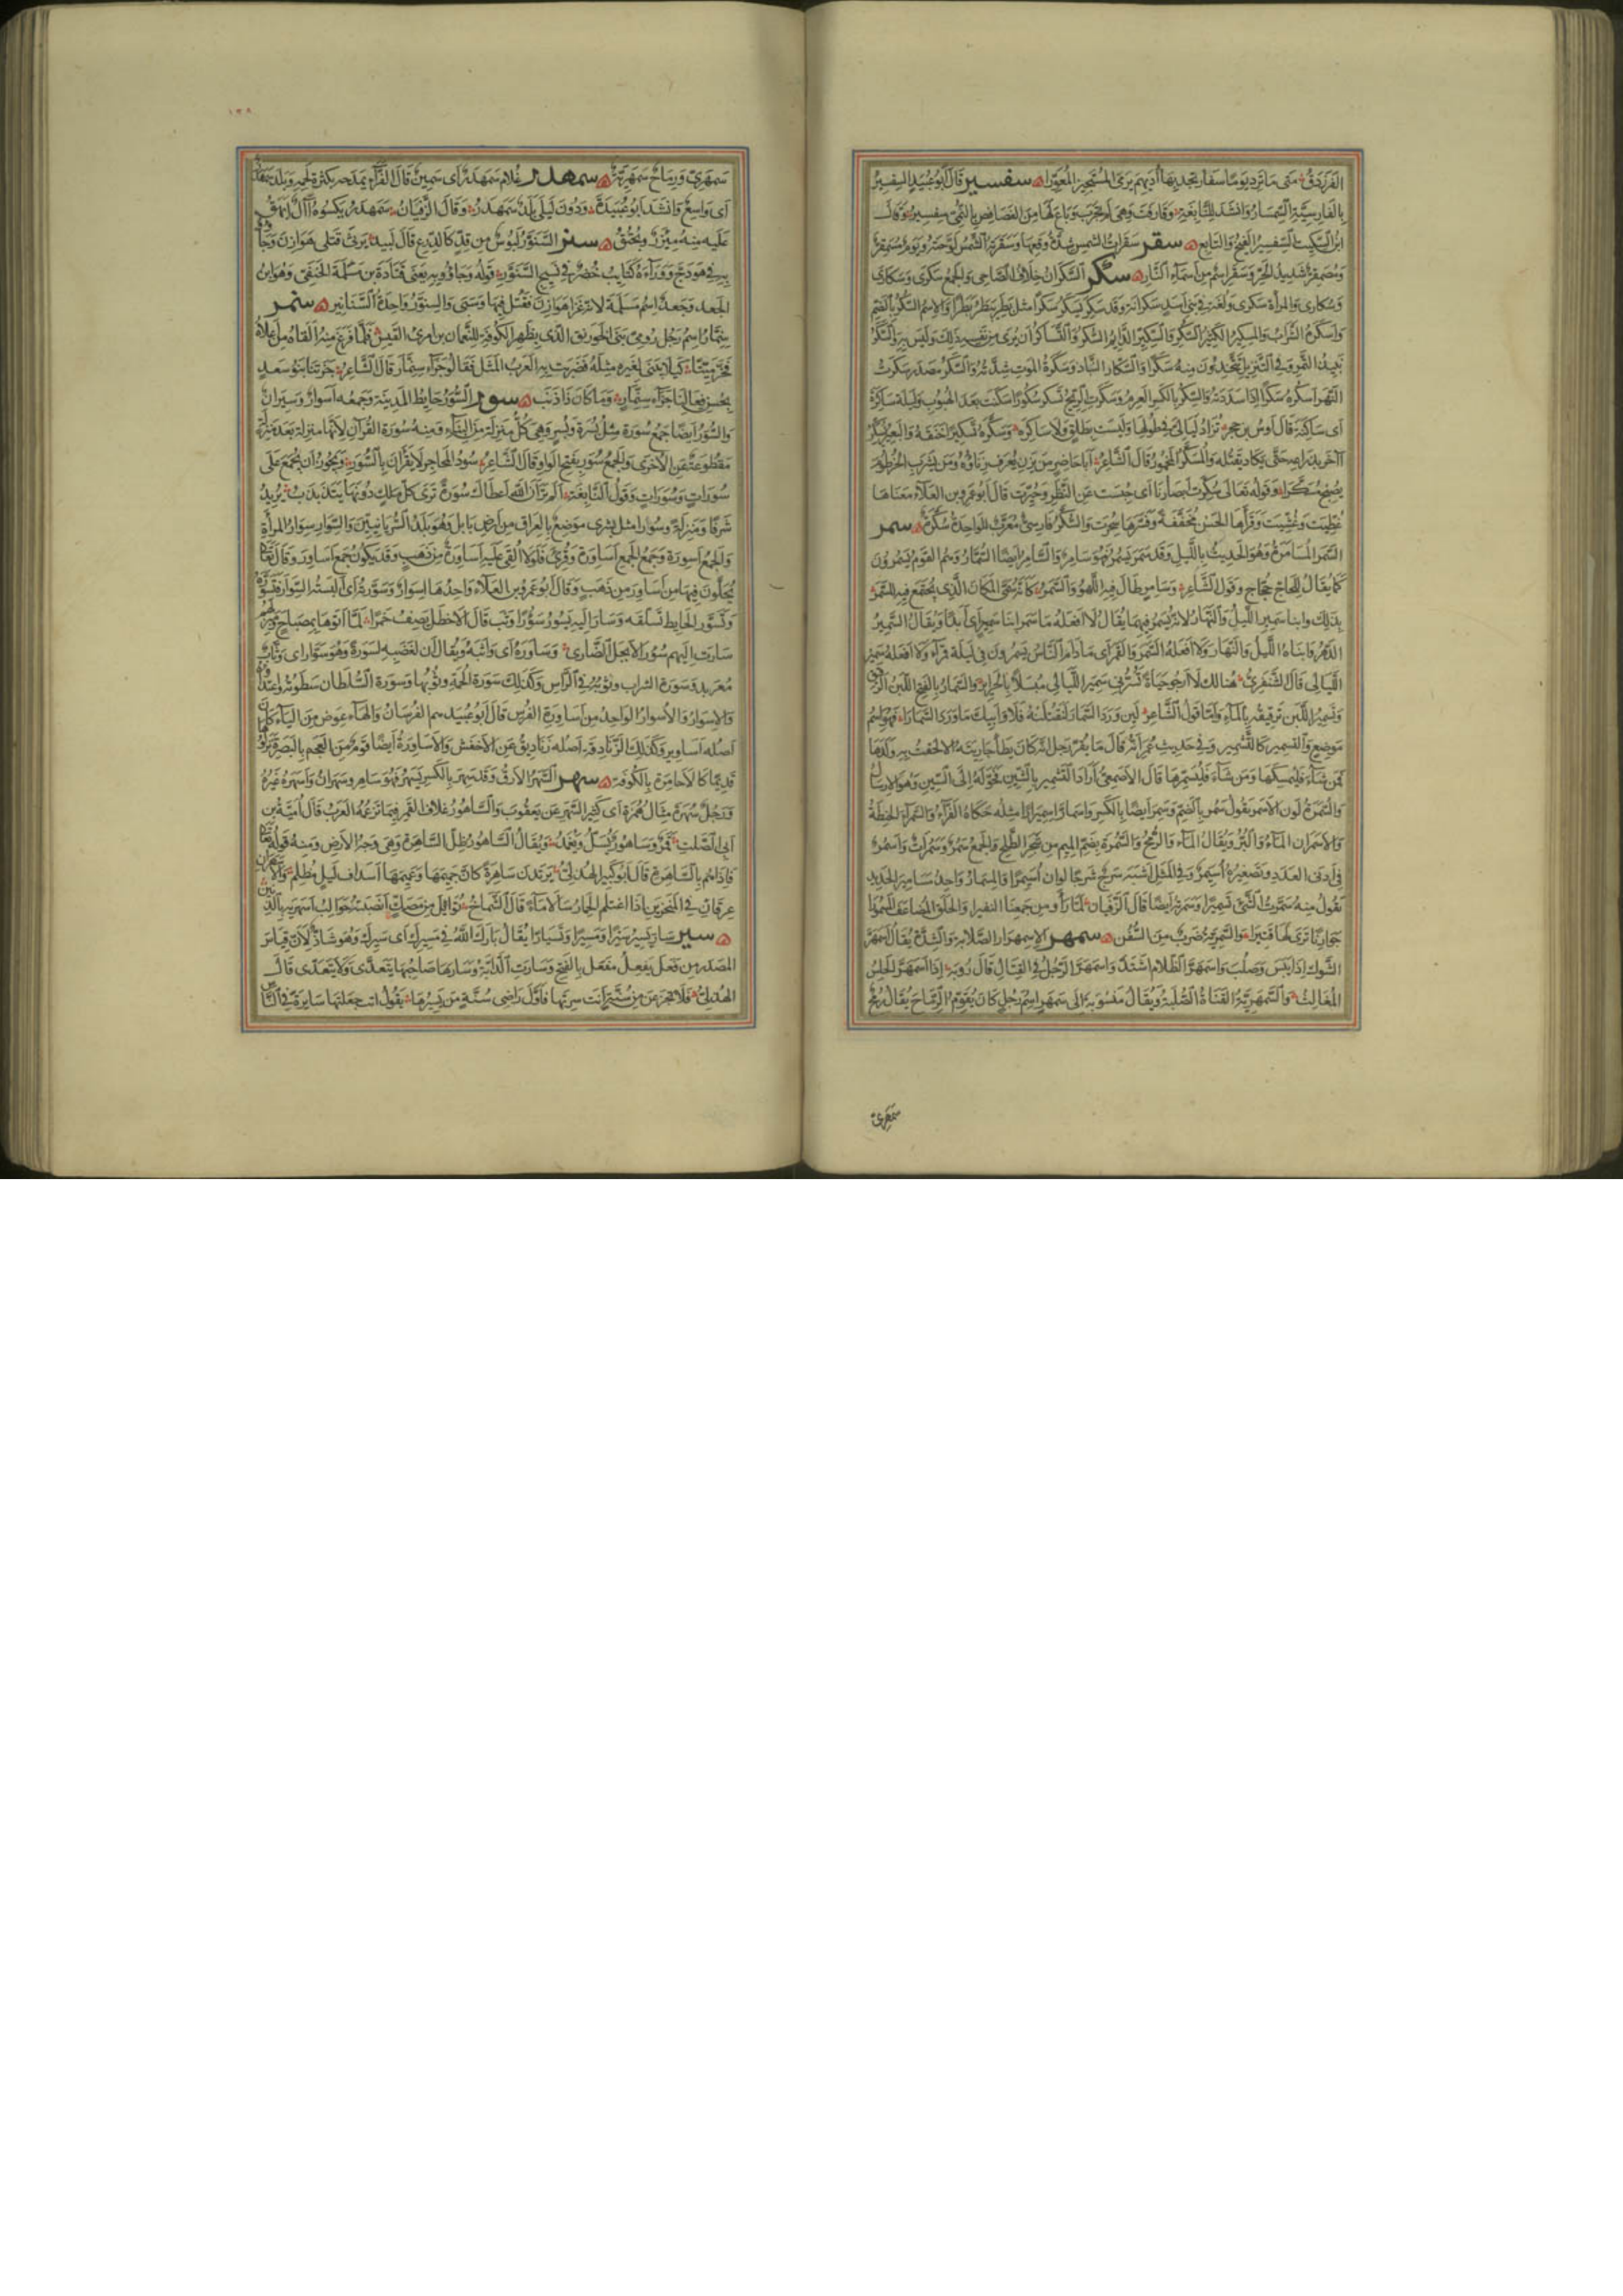 الفرزدق متى ما ترد يوما سفار تجد بها أديهم يرمى المستجيز المعورا سفسير قال أبو عبيد السفسير
بالفارسية السمسار وانشد للنابغة وقارفت وهى لم تجرب وباع لها من الفصافص بالنمى سفسير وقال
ابن السكيت السفسير الفيج والتابع سقر سقرات الشمس شدة وقعها وسقرته الشمس لوحته ويوم مسمقر
ومصمقر شديد الحر وسقر اسم من اسماء النار سكر السكران خلاف الصاحى والجمع سكرى وسكارى
وسكارى والمرأة سكرى ولغة فى بنى اسد سكرانة وقد سكر يسكر سكرا مثل بطر يبطر بطرا والاسم السكر بالضم
واسكره الشراب والمسكير الكثير السكر والسكير الدائم السكر والتساكر أن يرى من نفسه ذلك وليس به والسكر
نبيذ التمر وفى التنزيل تتخذون منه سكرا والسكار النباذ وسكرة الموت شدته والسكر مصدر سكرت
النهر اسكره سكرا اذا سددته والسكر بالكسر العرم وسكرت الريح تسكر سكورا سكنت بعد الهبوب وليلة ساكرة
أى ساكنة قال أوس بن حجر تزاد ليالى فى طولها وليست بطلق ولا ساكره وسكره تسكيرا خنقه والبعير يسكر
آخر بذراعه حتى يكاد يقتله والمسكر المخمور قال الشاعر أبا حاضر من يزن يعرف زناؤه ومن يشرب الخرطوم
يصبح مسكرا وقوله تعالى سكرت أبصارنا أى حبست عن النظر وحيرت قال أبو عمرو بن العلاء معناها
غطيت وغشيت وقرأها الحسن مخففة وفسرها سحرت والسكر فارسى معرب الواحدة سكرة سمر
السمر المسامرة وهو الحديث بالليل وقد سمر يسمر فهو سامر والسامر ايضا السمار وهم القوم يسمرون
كما يقال للحاج حجاج وقول الشاعر وسامر طال فيه اللهو والسمر كأنه سمى المكان الذى يجتمع فيه للسمر
بذلك وابنا سمير الليل والنهار لانه يسمر فيهما يقال لا افعله ما سمر ابنا سمير أى أبدا ويقال السمير
الدهر وابناه الليل والنهار ولا افعله السمر والقمر أى ما دام الناس يسمرون فى ليلة قمراء ولا افعله سمير
الليالى قال الشنفرى هنالك لا أرجو حياة تسرنى سمير الليالى مبسلا بالجرائر والسمار بالفتح اللبن الرقيق
وتسمير اللبن ترقيقه بالماء وأما قول الشاعر لئن ورد السمار لنقتلنه فلا وأبيك ما ورد السمارا فهو اسم
موضع والتسمير كالتشمير وفى حديث عمر انه قال ما يقر رجل انه كان يطأ جاريته الا الحقت به ولدها
فمن شاء فليمسكها ومن شاء فليسمرها قال الاصمعى أراد التشمير بالشين فحوله الى السين وهو الارسال
والسمرة لون الاسمر يقول سمر بالضم وسمر ايضا بالكسر واسمار اسميرارا مثله حكاه الفراء والسمراء الحنطة
والاسمران الماء والبر ويقال الماء والرمح والسمرة بضم الميم من شجر الطلح والجمع سمر وسمرات واسمر
فى أدنى العدد وتصغيره أسيمر وفى المثل اشبه شرج شرجا لو أن أسيمرا والمسمار واحد مسامير الحديد
تقول منه سمرت الشىء تسميرا وسمرته ايضا قال الزفيان لما رأوا من جمعنا النفيرا والحلق المضاعف المسمورا
جوارنا ترى لها قتيرا والسميرية ضرب من السفن سمهر الاسمهرار الصلابة والشدة يقال اسمهر
الشوك اذا يبس وصلب واسمهر الظلام اشتد واسمهر الرجل فى القتال قال رؤبة اذا اسمهر الحلس
المغالث والسمهرية القناة الصلبة ويقال منسوبة الى سمهر اسم رجل كان يقوم الرماح يقال رمح
سمهرى
١٣٨
سمهرى ورماح سمهرية سمهدر غلام سمهدر أى سمين قال الفراء يمدحه بكثرة لحمه وبلد سمهدر
أى واسع وانشد أبو عبيدة ودون ليلى بلد سمهدر وقال الزفيان سمهدر يكسوه آل أبهق
عليه منه مئزر وبخنق سنر السنور لبوس من قد كالدرع قال لبيد يرثى قتلى هوازن وجاؤا
به فى هودج ووراءه كتائب خضر فى نسيج السنور قوله وجاؤا به يعنى قتادة بن مسلمة الحنفى وهو ابن
الجعد وجعد اسم مسلمة لانه غزا هوازن فقتل فيها وسبى والسنور واحد السنانير سنمر
سنمار اسم رجل رومى بنى الخورنق الذى بظهر الكوفة للنعمان بن امرئ القيس فلما فرغ منه القاه من أعلاه
فخر ميتا كيلا يبنى لغيره مثله فضربت به العرب المثل فقالوا جزاء سنمار قال الشاعر جزتنا بنو سعد
بحسن فعالنا جزاء سنمار وما كان ذا ذنب سور السور حائط المدينة وجمعه أسوار وسيران
والسور أيضا جمع سورة مثل بسرة وبسر وهى كل منزلة من البناء ومنه سورة القرآن لأنها منزلة بعد منزلة
مقطوعة عن الاخرى والجمع سور بفتح الواو قال الشاعر سود المحاجر لا يقرأن بالسور ويجوز أن يجمع على
سورات وسورات وقول النابغة ألم تر أن الله أعطاك سورة ترى كل ملك دونها يتذبذب يريد
شرفا ومنزلة وسورا مثل بشرى موضع بالعراق من أرض بابل وهو بلد السريانيين والسوار سوار المرأة
والجمع أسورة وجمع الجمع أساورة وقرئ فلولا ألقى عليه أساورة من ذهب وقد يكون جمع أساور وقال تعالى
يحلون فيها من أساور من ذهب وقال أبو عمرو بن العلاء واحدها إسوار وسورته أى ألبسته السوار فتسوره
وتسور الحائط تسلقه وسار اليه يسور سؤورا وثب قال الاخطل يصف خمرا لما أتوها بمصباح ومبزلهم
سارت اليهم سؤور الأبجل الضارى وساوره أى واثبه ويقال ان لغضبه لسورة وهو سوار أى وثاب
معربد وسورة الشراب وثوبه فى الرأس وكذلك سورة الحمة وثوبها وسورة السلطان سطوته واعتداؤه
والإسوار والأسوار الواحد من أساورة الفرس قال أبو عبيد هم الفرسان والهاء عوض من الياء كان
أصله أساوير وكذلك الزنادقة أصله زناديق عن الأخفش والأساورة أيضا قوم من العجم بالبصرة نزلوها
قديما كالأحامرة بالكوفة سهر السهر الأرق وقد سهر بالكسر يسهر فهو ساهر وسهران وأسهره غيره
ورجل سهرة مثال همزة أى كثير السهر عن يعقوب والساهور غلاف القمر فيما تزعمه العرب قال أمية بن
أبى الصلت قمر وساهور يسل ويغمد ويقال الساهور ظل الساهرة وهى وجه الأرض ومنه قوله تعالى
فاذا هم بالساهرة قال أبو كبير الهذلى يرتدن ساهرة كأن جميمها وعميمها أسداف ليل مظلم والأسهران
عرقان فى المنخرين اذا اغتلم الحمار سالا ماء قال الشماخ توائل من مصك أنصبته حوالب أسهريه بالذنين
سير سار يسير سيرا ومسيرا وتسيارا يقال بارك الله فى مسيرك أى سيرك وهو شاذ لأن قياس
المصدر من فعل يفعل مفعل بالفتح وسارت الدابة وسارها صاحبها يتعدى ولا يتعدى قال
الهذلى فلا تجزعن من سنة أنت سرتها فأول راضى سنة من يسيرها يقول أنت جعلتها سائرة فى الناس